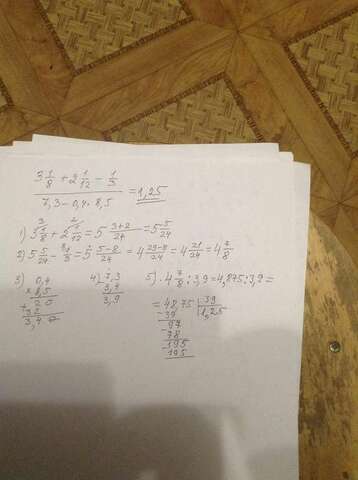 3 1/8 + 2 1/12 - 1/3
7,3 - 0,4 · 8,5 = 1,25
1) 3 1/8 + 2 1/12 = 5 3+2/24 = 5 5/24
2) 5 5/24 - 1/3 = 5 5-8/24 = 4 29-8/24 = 4 21/24 = 4 7/8
3) 0,4 4) 7,3 5) 4 7/8 : 3,9 = 4,875 : 3,9 =
× 8,5 3,4 = 48,75 39
20 3,9 -39 1,25
+ 32 97
3,40 78
195
195